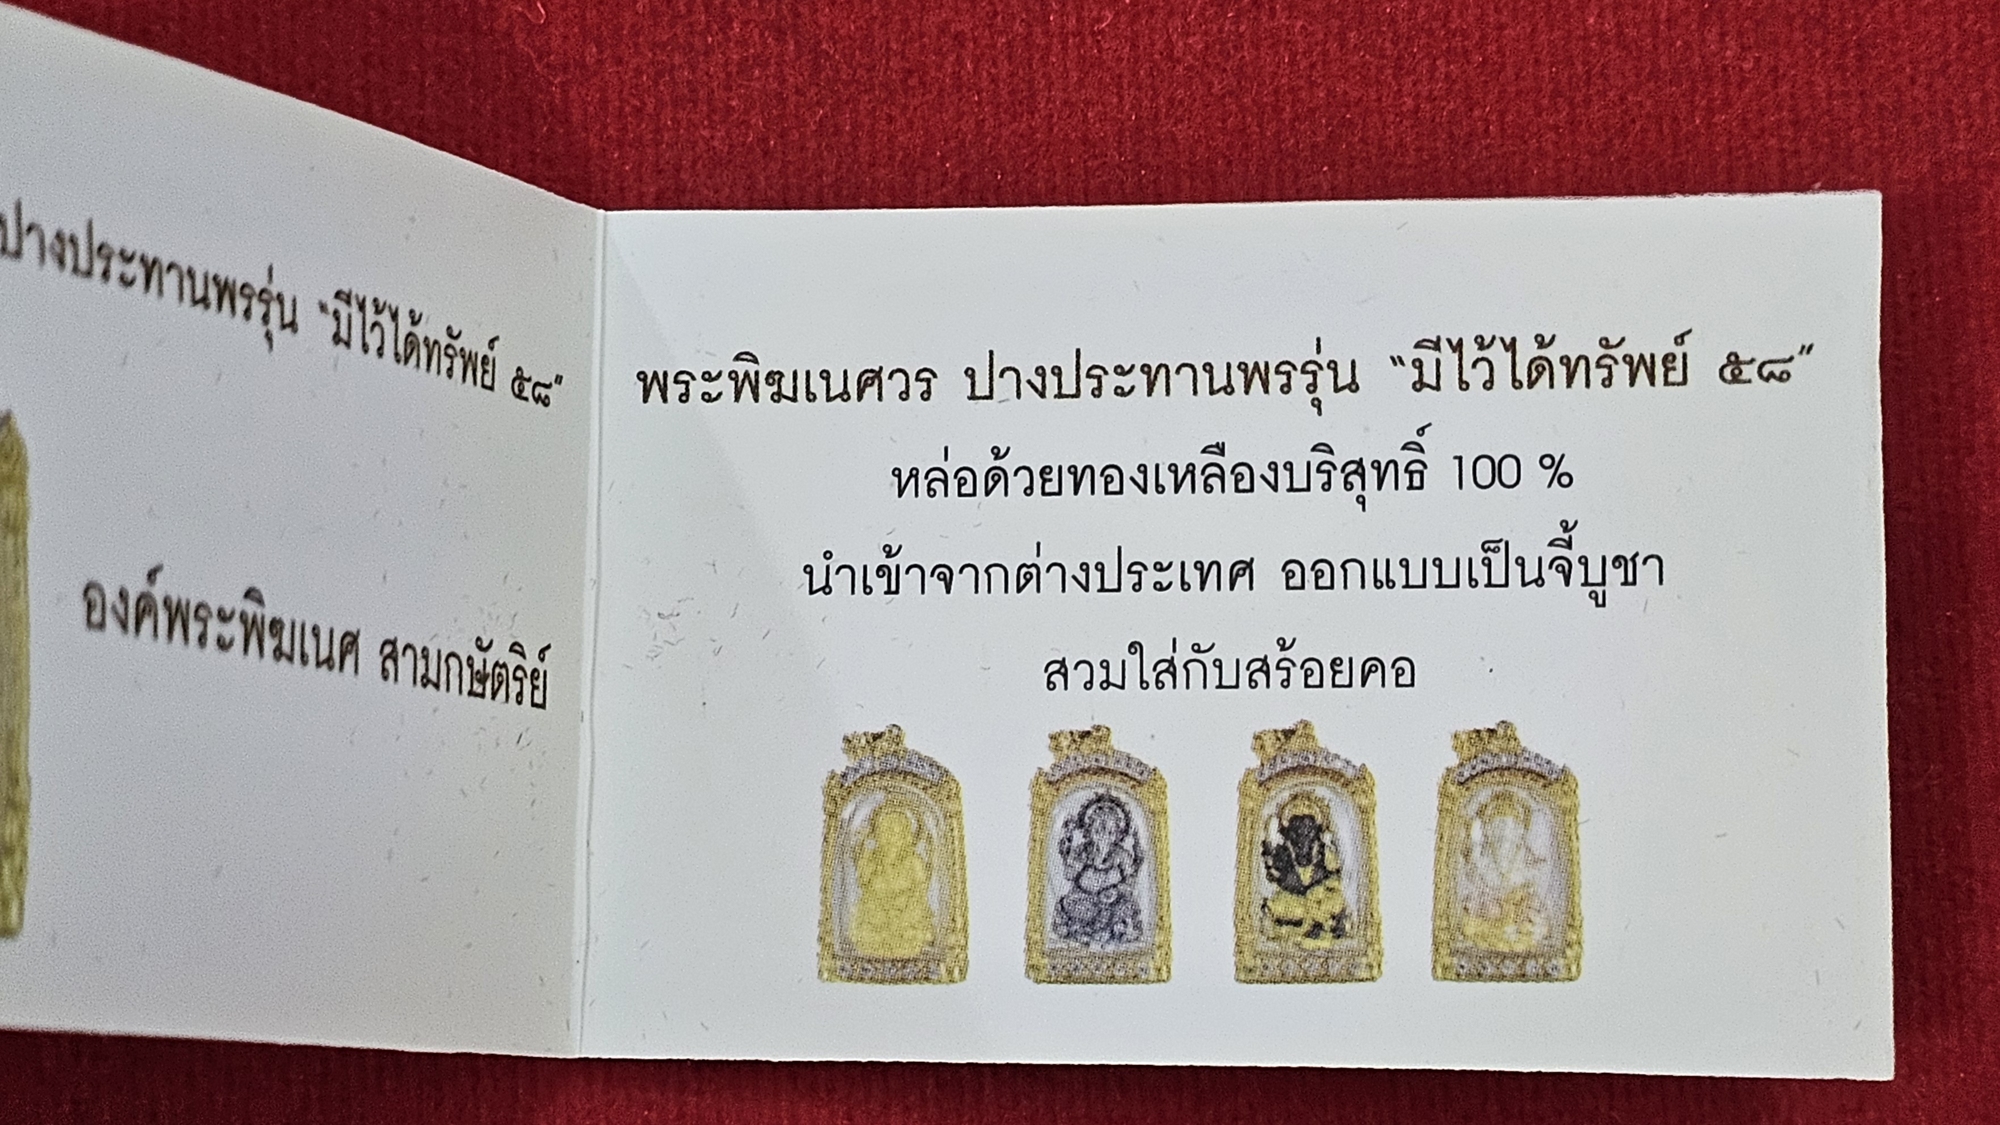 ปางประทานพรรุ่น “มีไว้ได้ทรัพย์ ๕๘”
องค์พระพิฆเนศ สามกษัตริย์
พระพิฆเนศวร ปางประทานพรรุ่น “มีไว้ได้ทรัพย์ ๕๘”
หล่อด้วยทองเหลืองบริสุทธิ์ 100 %
นำเข้าจากต่างประเทศ ออกแบบเป็นจี้บูชา
สวมใส่กับสร้อยคอ